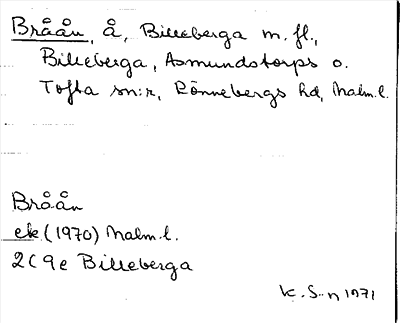 Bråån, å, Billeberga m.fl.,
Billeberga, Asmundstorps o.
Tofta sn:r, Rönnebergs hd, Malm.l.
Bråån
ek (1970) Malm.l.
2C9e Billeberga
K.S-n 1971